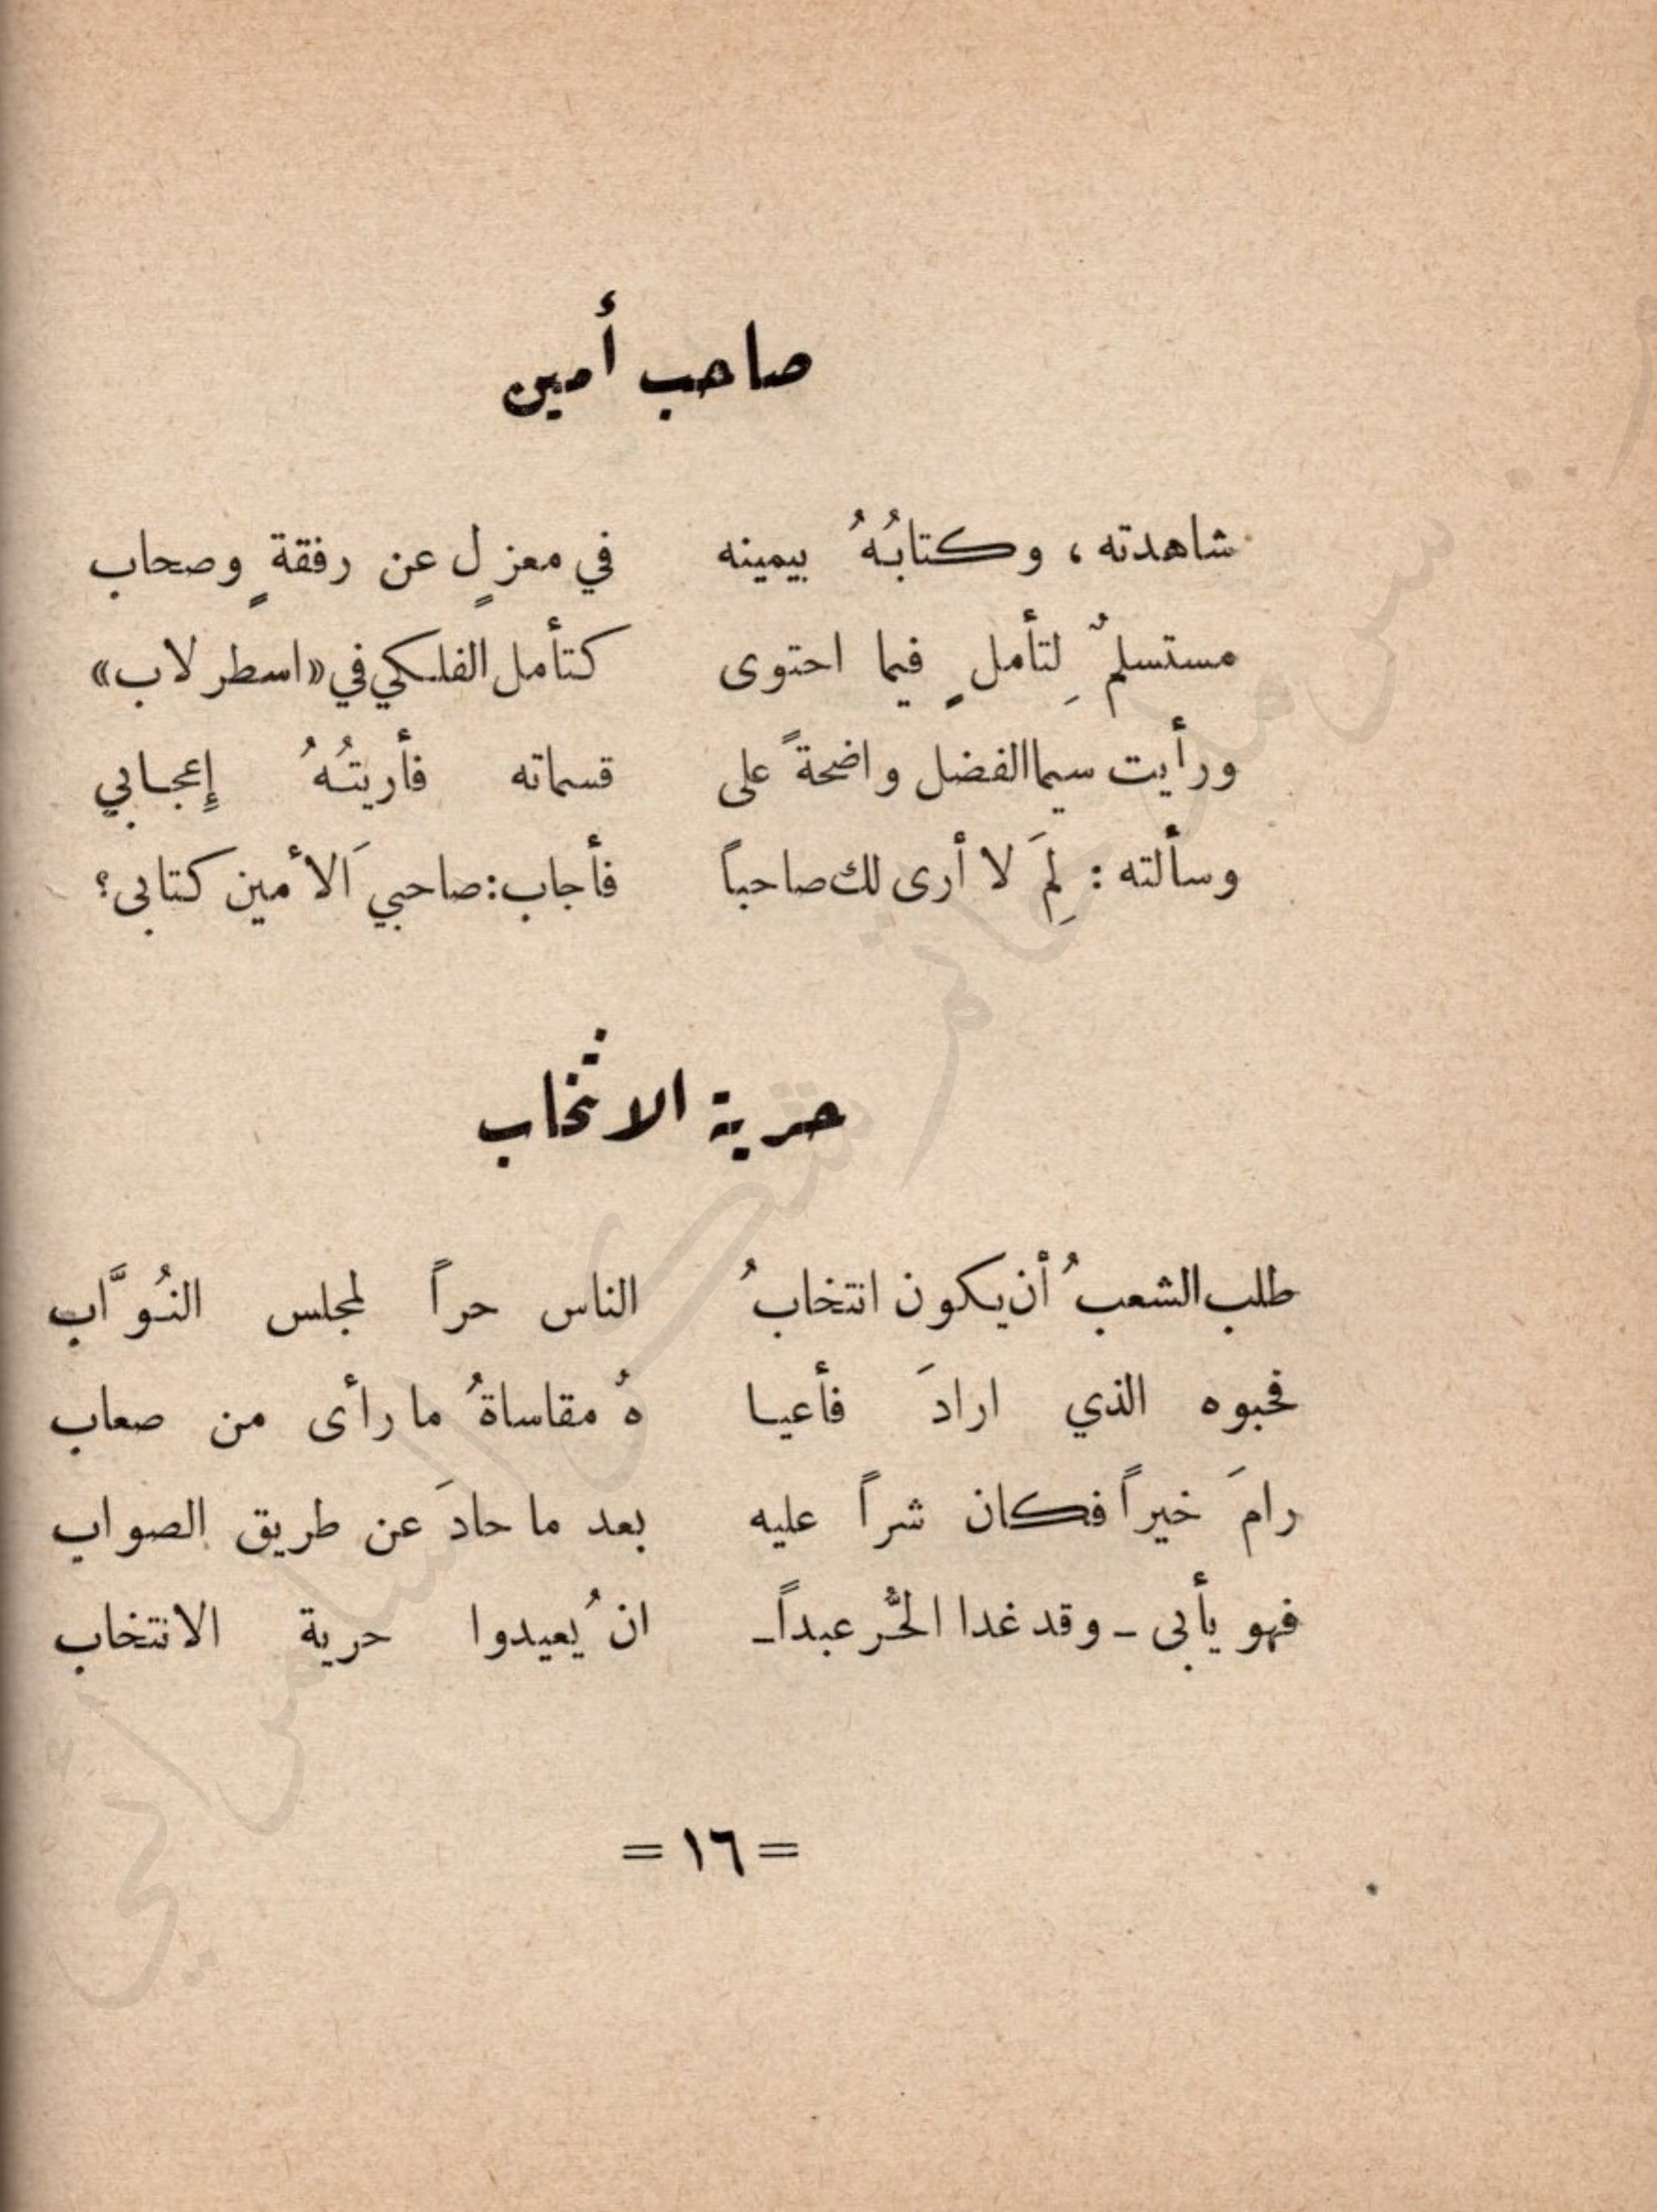 صاحب أمين
شاهدته، وكتابُهُ بيمينه في معزلٍ عن رفقةٍ وصحاب
مستسلمٌ لِتأملٍ فيما احتوى كتأمل الفلكي في «اسطرلاب»
ورأيت سيما الفضل واضحةً على قسماته فأريتُهُ إعجابي
وسألته: لِمَ لا أرى لك صاحباً فأجاب: صاحبيَ الأمين كتابى؟
حرية الانتخاب
طلب الشعبُ أن يكون انتخابُ الناس حراً لمجلس النُوَّاب
فحبوه الذي ارادَ فأعيا هُ مقاساةُ ما رأى من صعاب
رامَ خيراً فكان شراً عليه بعد ما حادَ عن طريق الصواب
فهو يأبى - وقد غدا الحُّر عبداً- ان يُعيدوا حرية الانتخاب
= ١٦ =